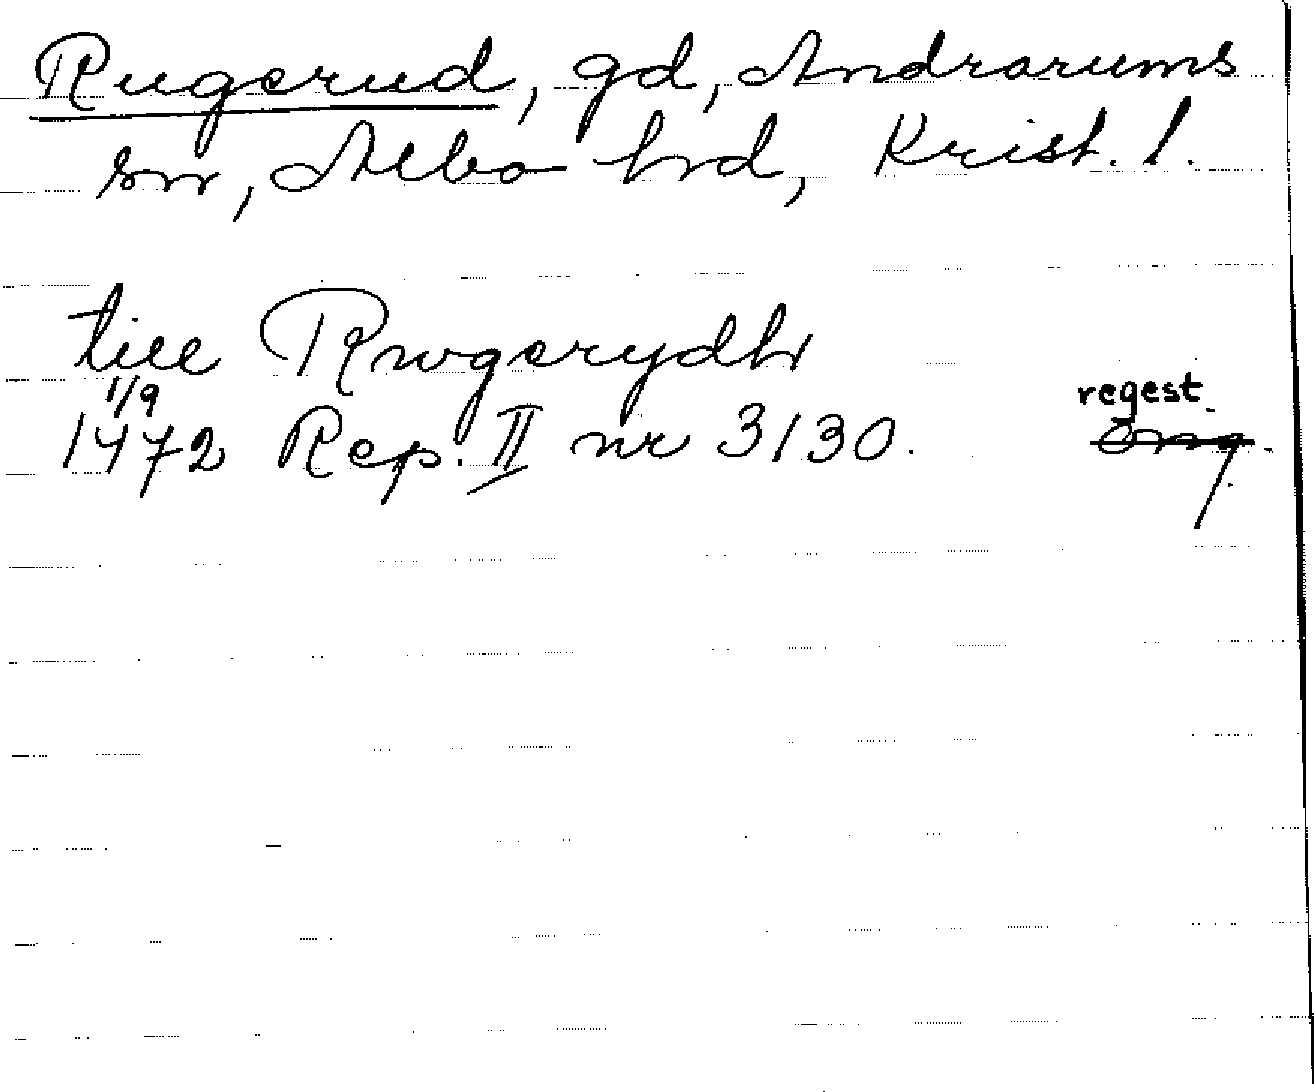 Rugerud, gd, Andrarums
sn, Albo hd, Krist. l.
till Rwgerydh
1/9
regest.
1472 Rep. II nr 3130.